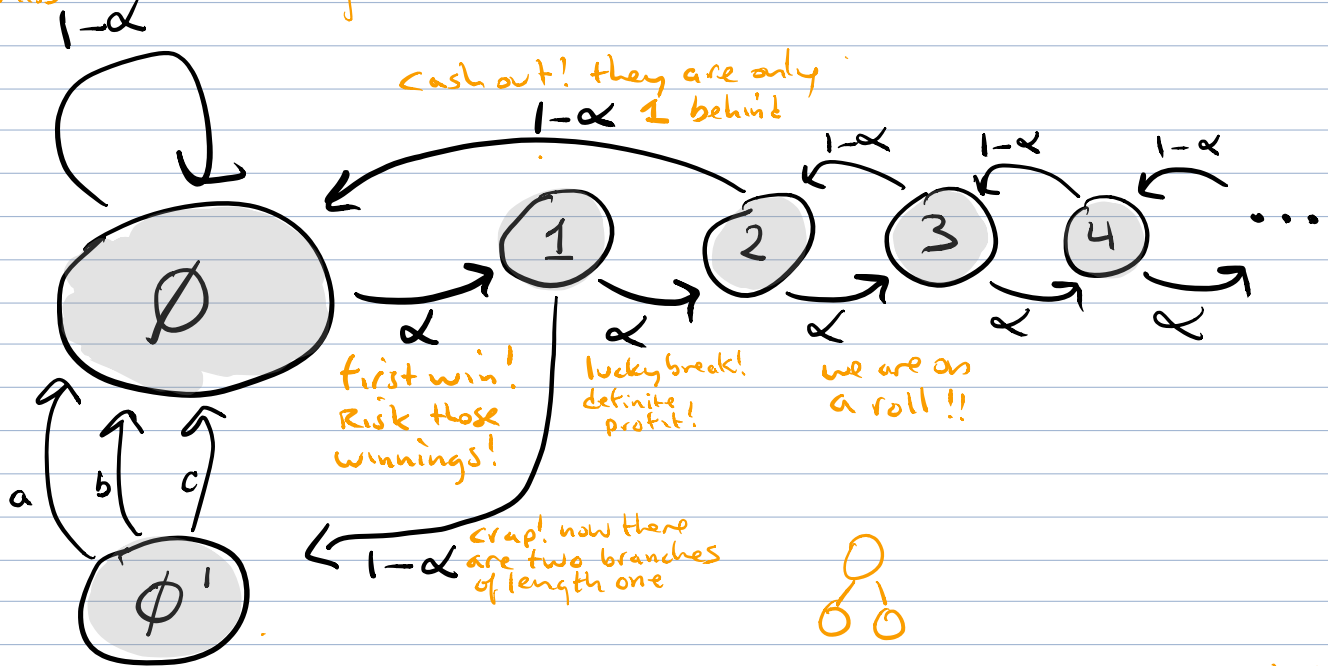 1-α
cash out! they are only
1-α 1 behind
1-α
1-α
1-α
Ø
1
2
3
4
...
α
α
α
α
α
first win!
Risk those
winnings!
lucky break!
definite
profit!
we are on
a roll!!
a
b
c
crap! now there
1-α are two branches
of length one
Ø'